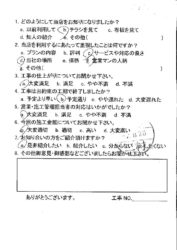 1. どのようにして当店をお知りになりましたか?
a. 以前利用して b. チラシを見て c. 看板を見て
d. 知人の紹介 e. その他(
2. 当店を利用するにあたって重視したことは何ですか?
a. プランの内容 b. 評判 c. サービスや対応の良さ
d. 当社の場所 e. 価格 f. 営業マンの人柄
g. その他(
3. 工事の仕上がりについてお聞かせ下さい。
a. 大変満足 b. 満足 c. やや不満 d. 不満
4. 工事は当初通の工期で終了しましたか?
a. 予定より早い b. 予定通り c. やや遅れた d. 大変遅れた
5. 営業・施工管理担当者の対応はいかがでしたか?
a. 大変満足 b. 満足 c. やや不満 d. 不満
6. 今回の施工金額についてお聞かせ下さい。
a. 大変適切 b. 適切 c. 高い d. 大変高い
7. お知り合いの方をご紹介頂けますか?
a. 是非紹介したい b. 紹介したい c. 分からない d. したくない
8. その他御意見・御感想などございましたらお聞かせ下さい。
ありがとうございます。 工事NO.